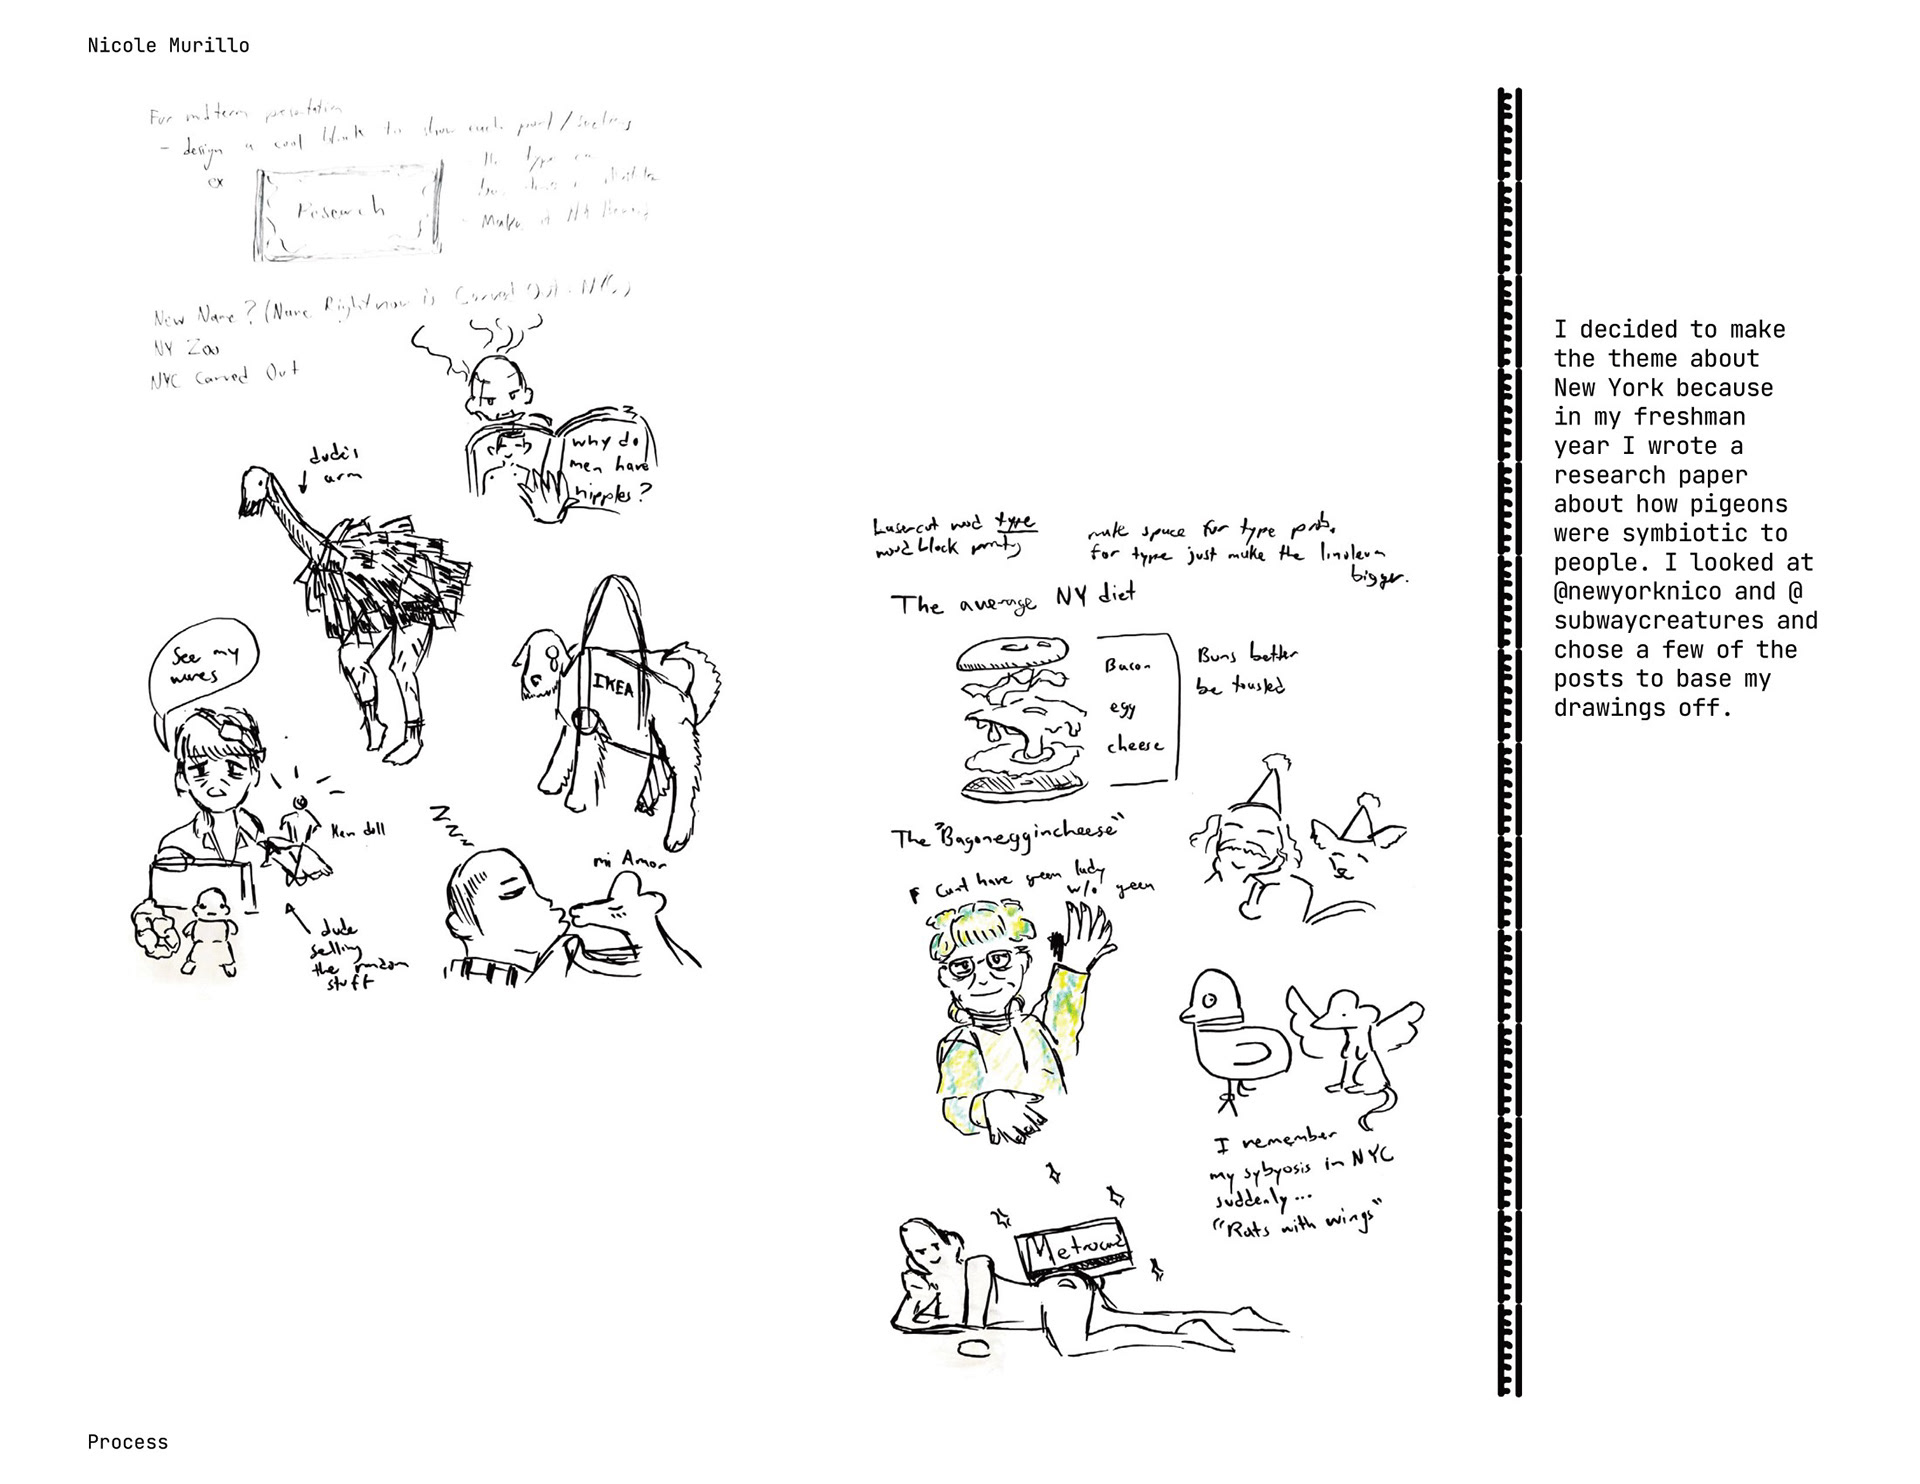 Nicole Murillo
For midterm presentation
- design a cool block to show each point / sections
ex
Research
the type
- Make it
New Name? (Name Right now is Carved Out: NYC)
NY Zoo
NYC Carved Out
why do
men have
nipples?
dude's
arm
See my
wares
IKEA
Ken doll
dude
selling
the random
stuff
mi Amor
Lasercut wood type
wood block printing
make space for type prob.
for type just make the linoleum
bigger.
The average NY diet
Bacon
egg
cheese
Buns better
be tousled
The "Bagoneggincheese"
Cant have green lady
w/o green
I remember
my sybyosis in NYC
suddenly...
"Rats with wings"
Metrocard
I decided to make
the theme about
New York because
in my freshman
year I wrote a
research paper
about how pigeons
were symbiotic to
people. I looked at
@newyorknico and @
subwaycreatures and
chose a few of the
posts to base my
drawings off.
Process